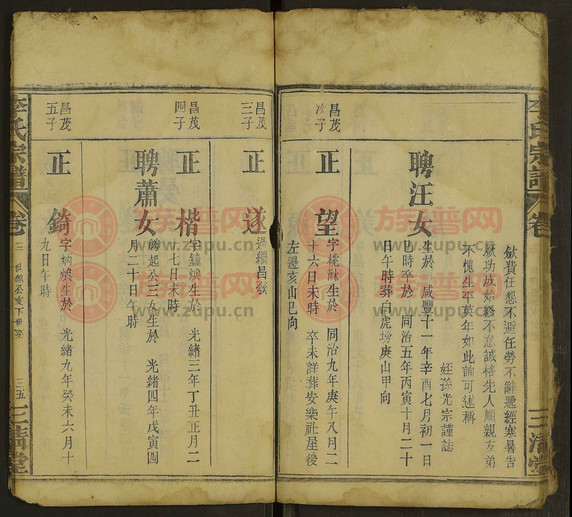 李氏宗譜 卷
三淸堂
欽費任怨不避任勞不辭遞經寒暑告
厥功成始終不怠誠倚先人順親友弟
不愧生平英年如此諭可述稱
姪孫光宗謹誌
聘汪女
生於 咸豐十一年辛酉七月初一日
巳時卒於 同治五年丙寅十月二十
日午時葬白虎壋庚山甲向
昌茂
次子
正望
於 同治九年庚午八月二
十六日未時 卒未詳葬安樂社屋後
左邊亥山巳向
昌茂
三子
正遂
過繼昌
昌茂
四子
正楷
生於 光緒三年丁丑正月二
七日未時
聘蕭女
起公三女生於 光緒四年戊寅四
月二十日午時
昌茂
五子
正錡
字 生於 光緒九年癸未六月十
九日午時
李氏宗譜 卷三
三五
三淸堂
族譜网
www.zupu.cn
族譜网
www.zupu.cn